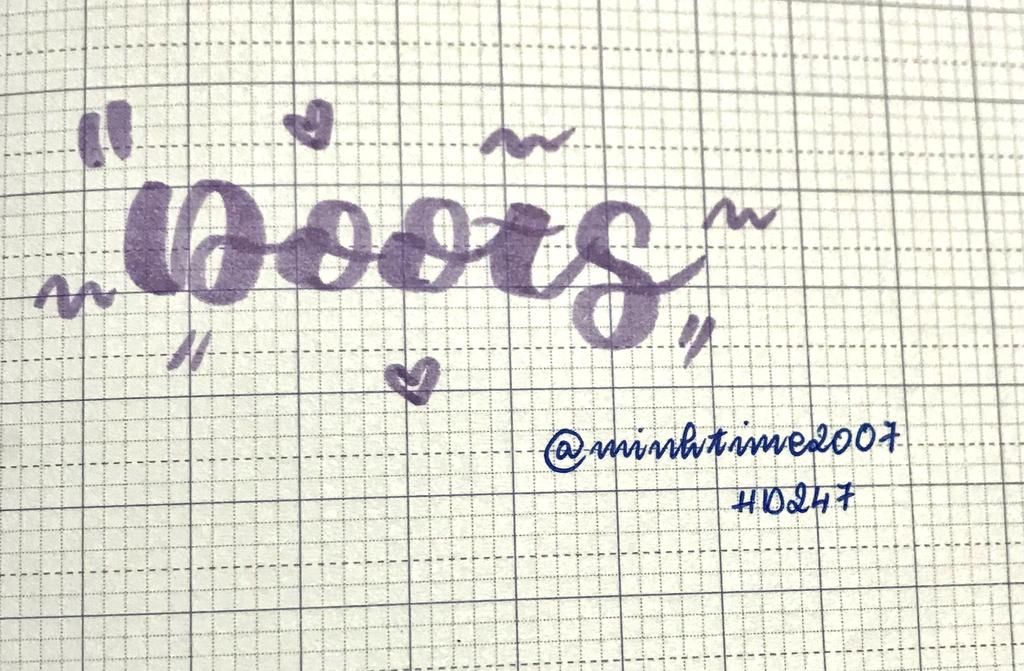 "Doots"
@minhtime2007
HD247